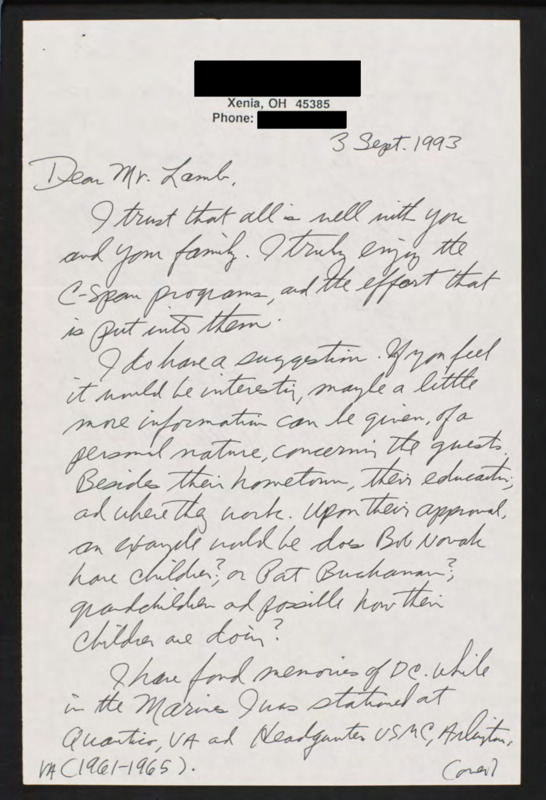 Xenia, OH 45385
Phone:
3 Sept. 1993
Dear Mr. Lamb,
I trust that all is well with you
and your family. I truly enjoy the
C-Span programs, and the effort that
is put into them.
I do have a suggestion. If you feel
it would be interestin, maybe a little
more information can be given, of a
personal nature, concerning the guests.
Besides their hometown, their education,
ad where they work. Upon their approval,
an example would be does Bob Novak
have children?, or Pat Buchanan?,
grandchildren ad possible how their
children are doin?
I have fond memories of DC. while
in the Marines I was stationed at
Quantico, VA ad Headquarters USMC, Arlington,
VA (1961-1965).
(over)